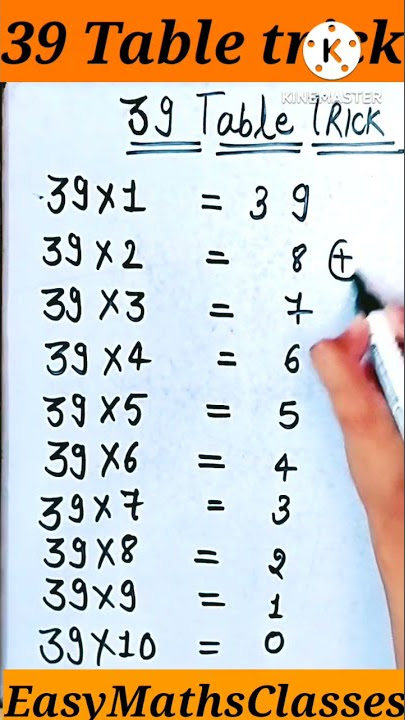 39 Table trick
K
KINEMASTER
39 Table TRICK
39×1 = 39
39×2 = 8 +
39×3 = 7
39×4 = 6
39×5 = 5
39×6 = 4
39×7 = 3
39×8 = 2
39×9 = 1
39×10 = 0
EasyMathsClasses